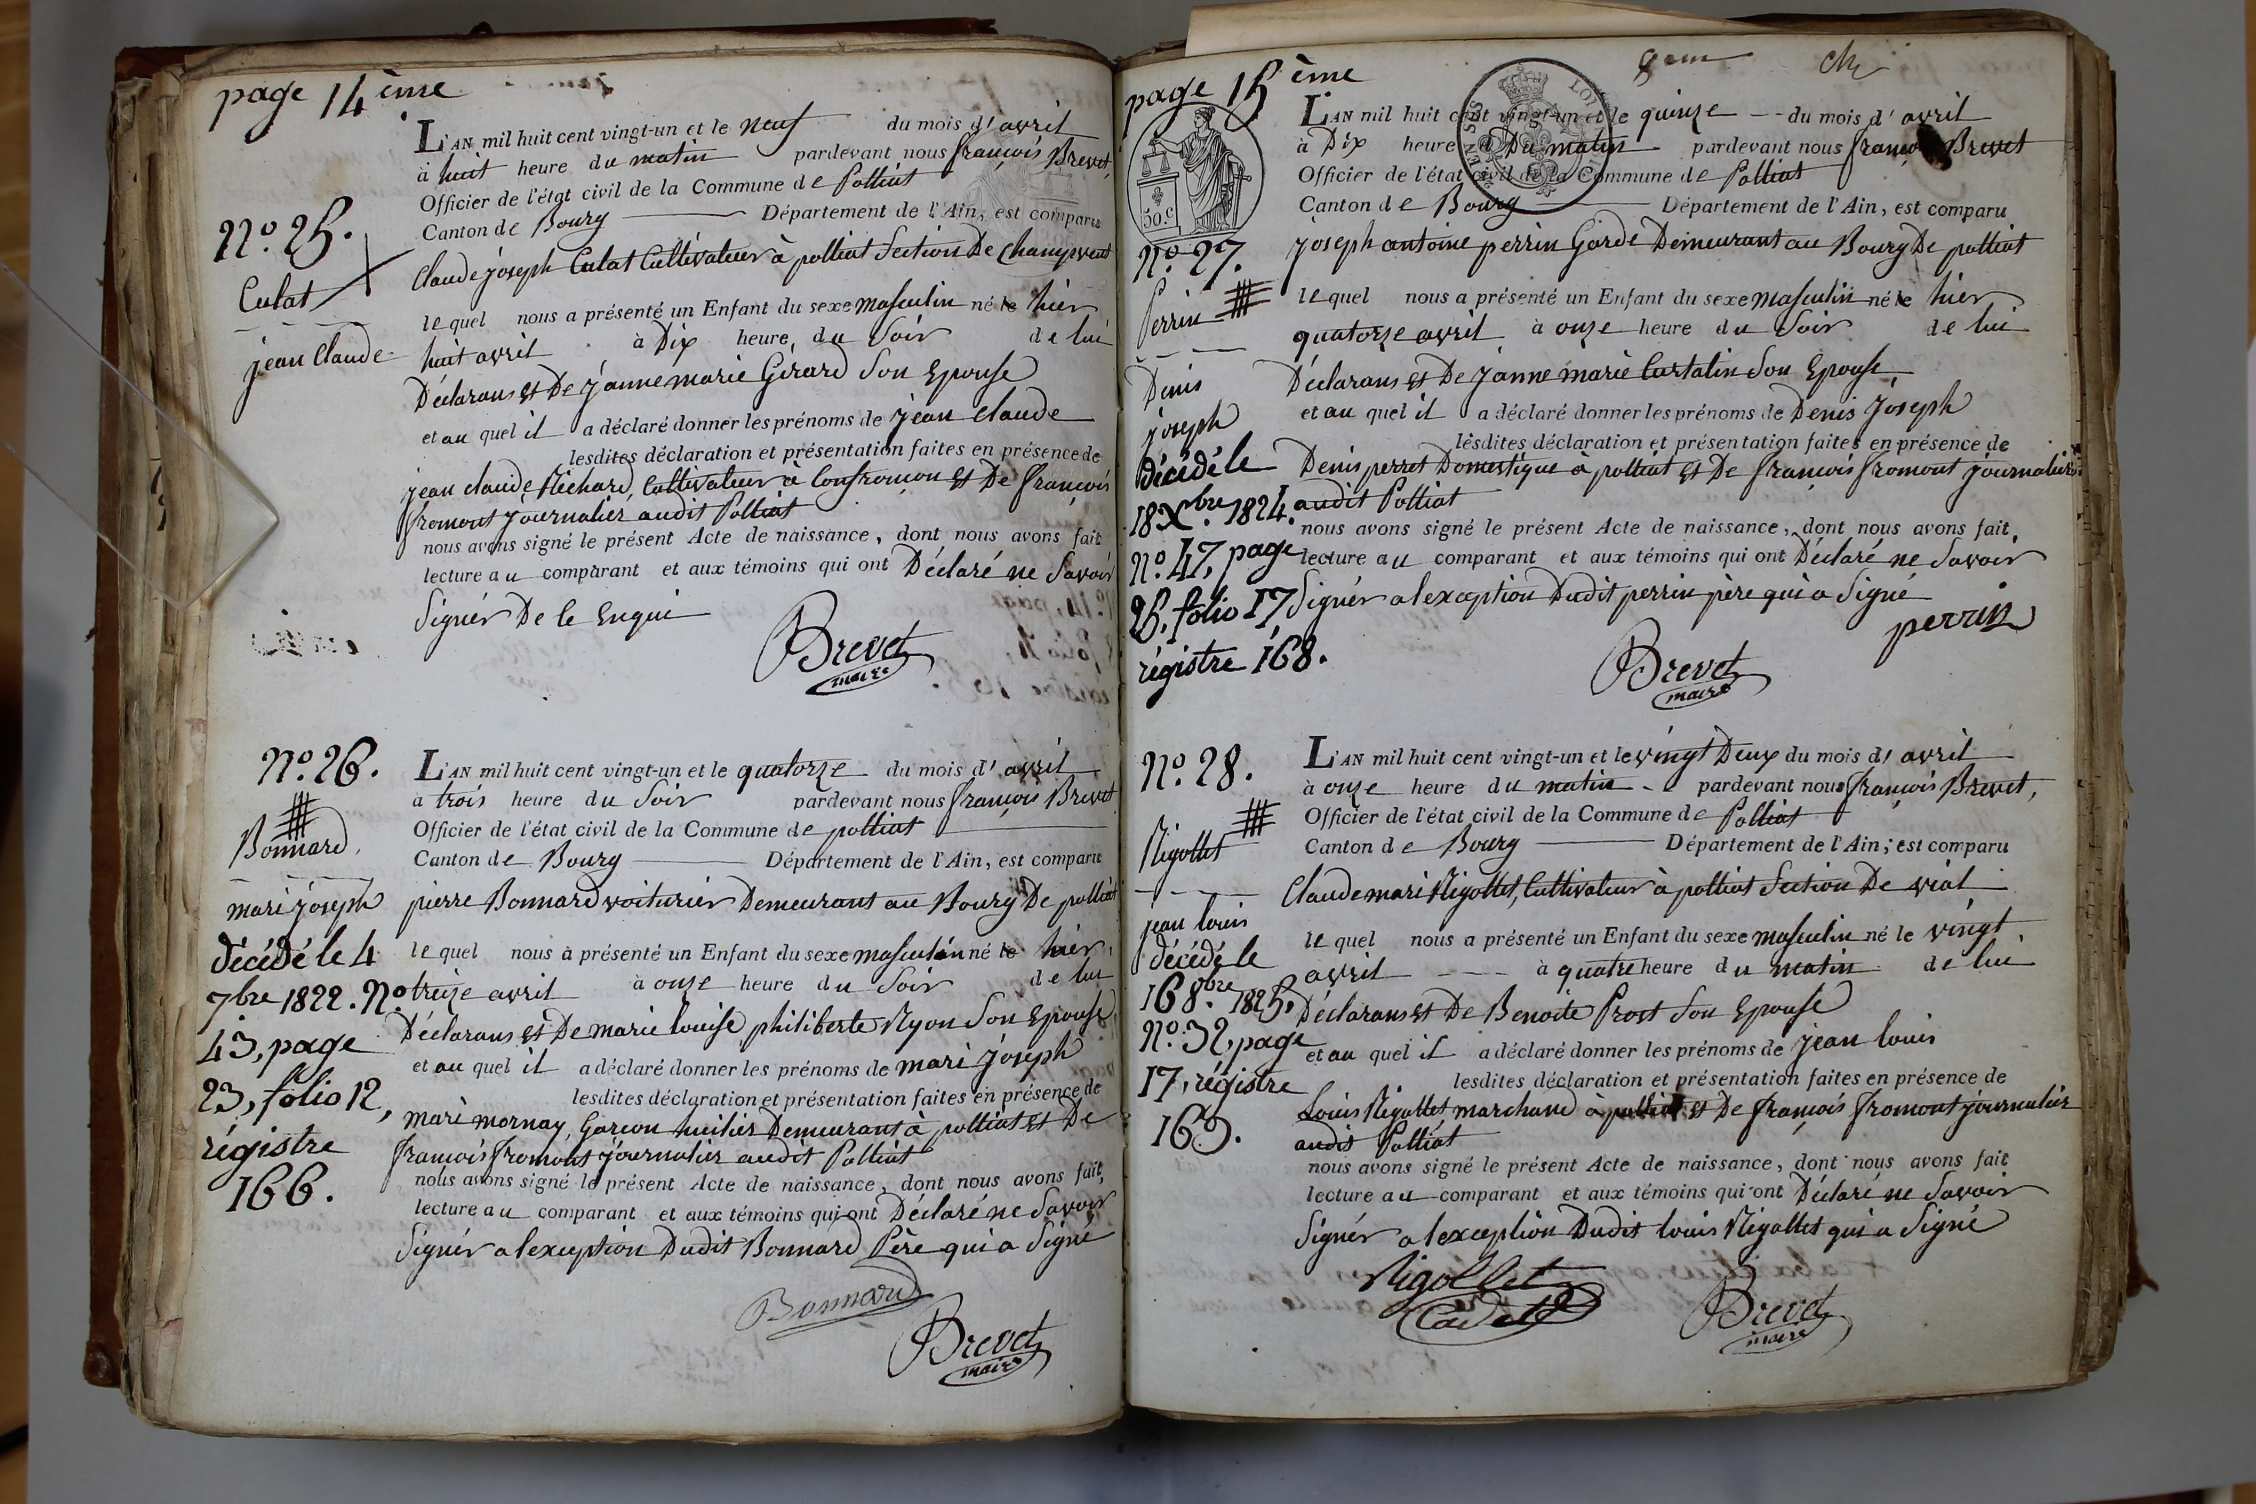 page 14 ème
L'AN mil huit cent vingt-un et le neuf du mois d'avril
à huit heure du matin pardevant nous françois Brevet,
Officier de l'état civil de la Commune de Polliat
Canton de Bourg Département de l'Ain, est comparu
N.o 25.
Culat
jean Claude
Claude joseph Culat Cultivateur à polliat Section De Champvent
le quel nous a présenté un Enfant du sexe masculin né le hier
huit avril à Dix heure du Soir de lui
Déclarans et De jeanne marie Girard Son Epouse
et au quel il a déclaré donner les prénoms de jean claude
lesdites déclaration et présentation faites en présence de
jean claude Richard, Cultivateur à Confronçon et De françois
fromont journalier audit Polliat
nous avons signé le présent Acte de naissance, dont nous avons fait
lecture au comparant et aux témoins qui ont Déclaré ne Savoir
Signér De le Enqui
Brevet
maire
N.o 26.
Bonnard
mari joseph
décédé le 4
7bre 1822. N.o
43, page
23, folio 12,
régistre
166.
L'AN mil huit cent vingt-un et le quatorze du mois d'avril
à trois heure du Soir pardevant nous françois Brevet
Officier de l'état civil de la Commune de polliat
Canton de Bourg Département de l'Ain, est comparu
pierre Bonnard voiturier Demeurant au Bourg De polliat
le quel nous a présenté un Enfant du sexe masculin né le hier
treize avril à onze heure du Soir de lui
Déclarans et De marie louise philiberte Ryon Son Epouse
et au quel il a déclaré donner les prénoms de mari joseph
lesdites déclaration et présentation faites en présence de
mari mornay, Garcon Demeurant à polliat et De
francois fromont journalier audit Polliat
nous avons signé le présent Acte de naissance, dont nous avons fait,
lecture au comparant et aux témoins qui ont Déclaré ne Savoir
Signér a lexception Dudit Bonnard Père qui a Signé
Bonnard
Brevet
maire
page 15 ème
L'AN mil huit cent vingt-un et le quinze du mois d'avril
à Dix heure Du matin pardevant nous françois Brevet
Officier de l'état civil de la Commune de Polliat
Canton de Bourg Département de l'Ain, est comparu
50.c
N.o 27.
Perrin
Denis
joseph
décédé le
18 Xbre. 1824.
N.o 47, page
25, folio 17
régistre 168.
joseph antoine perrin Garde Demeurant au Bourg De polliat
le quel nous a présenté un Enfant du sexe masculin né le hier
quatorze avril à onze heure du Soir de lui
Déclarans et De jeanne marie Curtalin Son Epouse
et au quel il a déclaré donner les prénoms de Denis joseph
lesdites déclaration et présentation faites en présence de
Denis perret Domestique à polliat et De françois fromont journalier
audit Polliat
nous avons signé le présent Acte de naissance, dont nous avons fait,
lecture au comparant et aux témoins qui ont Déclaré ne Savoir
Signér a lexception Dudit perrin père qui a Signé
perrin
Brevet
maire
N.o 28.
Rigollet
jean louis
décédé le
16 8.bre 1825,
N.o 32, page
17, régistre
169.
L'AN mil huit cent vingt-un et le vingt Deux du mois d'avril
à onze heure du matin pardevant nous françois Brevet,
Officier de l'état civil de la Commune de Polliat
Canton de Bourg Département de l'Ain, est comparu
Claude mari Rigollet, Cultivateur à polliat Section De vial
le quel nous a présenté un Enfant du sexe masculin né le vingt
avril à quatre heure du matin de lui
Déclarans et De Benoite Prost Son Epouse
et au quel il a déclaré donner les prénoms de jean louis
lesdites déclaration et présentation faites en présence de
Louis Rigollet marchand à polliat et De françois fromont journalier
audit Polliat
nous avons signé le présent Acte de naissance, dont nous avons fait
lecture au comparant et aux témoins qui ont Déclaré ne Savoir
Signér a lexception Dudit louis Rigollet qui a Signé
Rigollet
Cadet
Brevet
maire